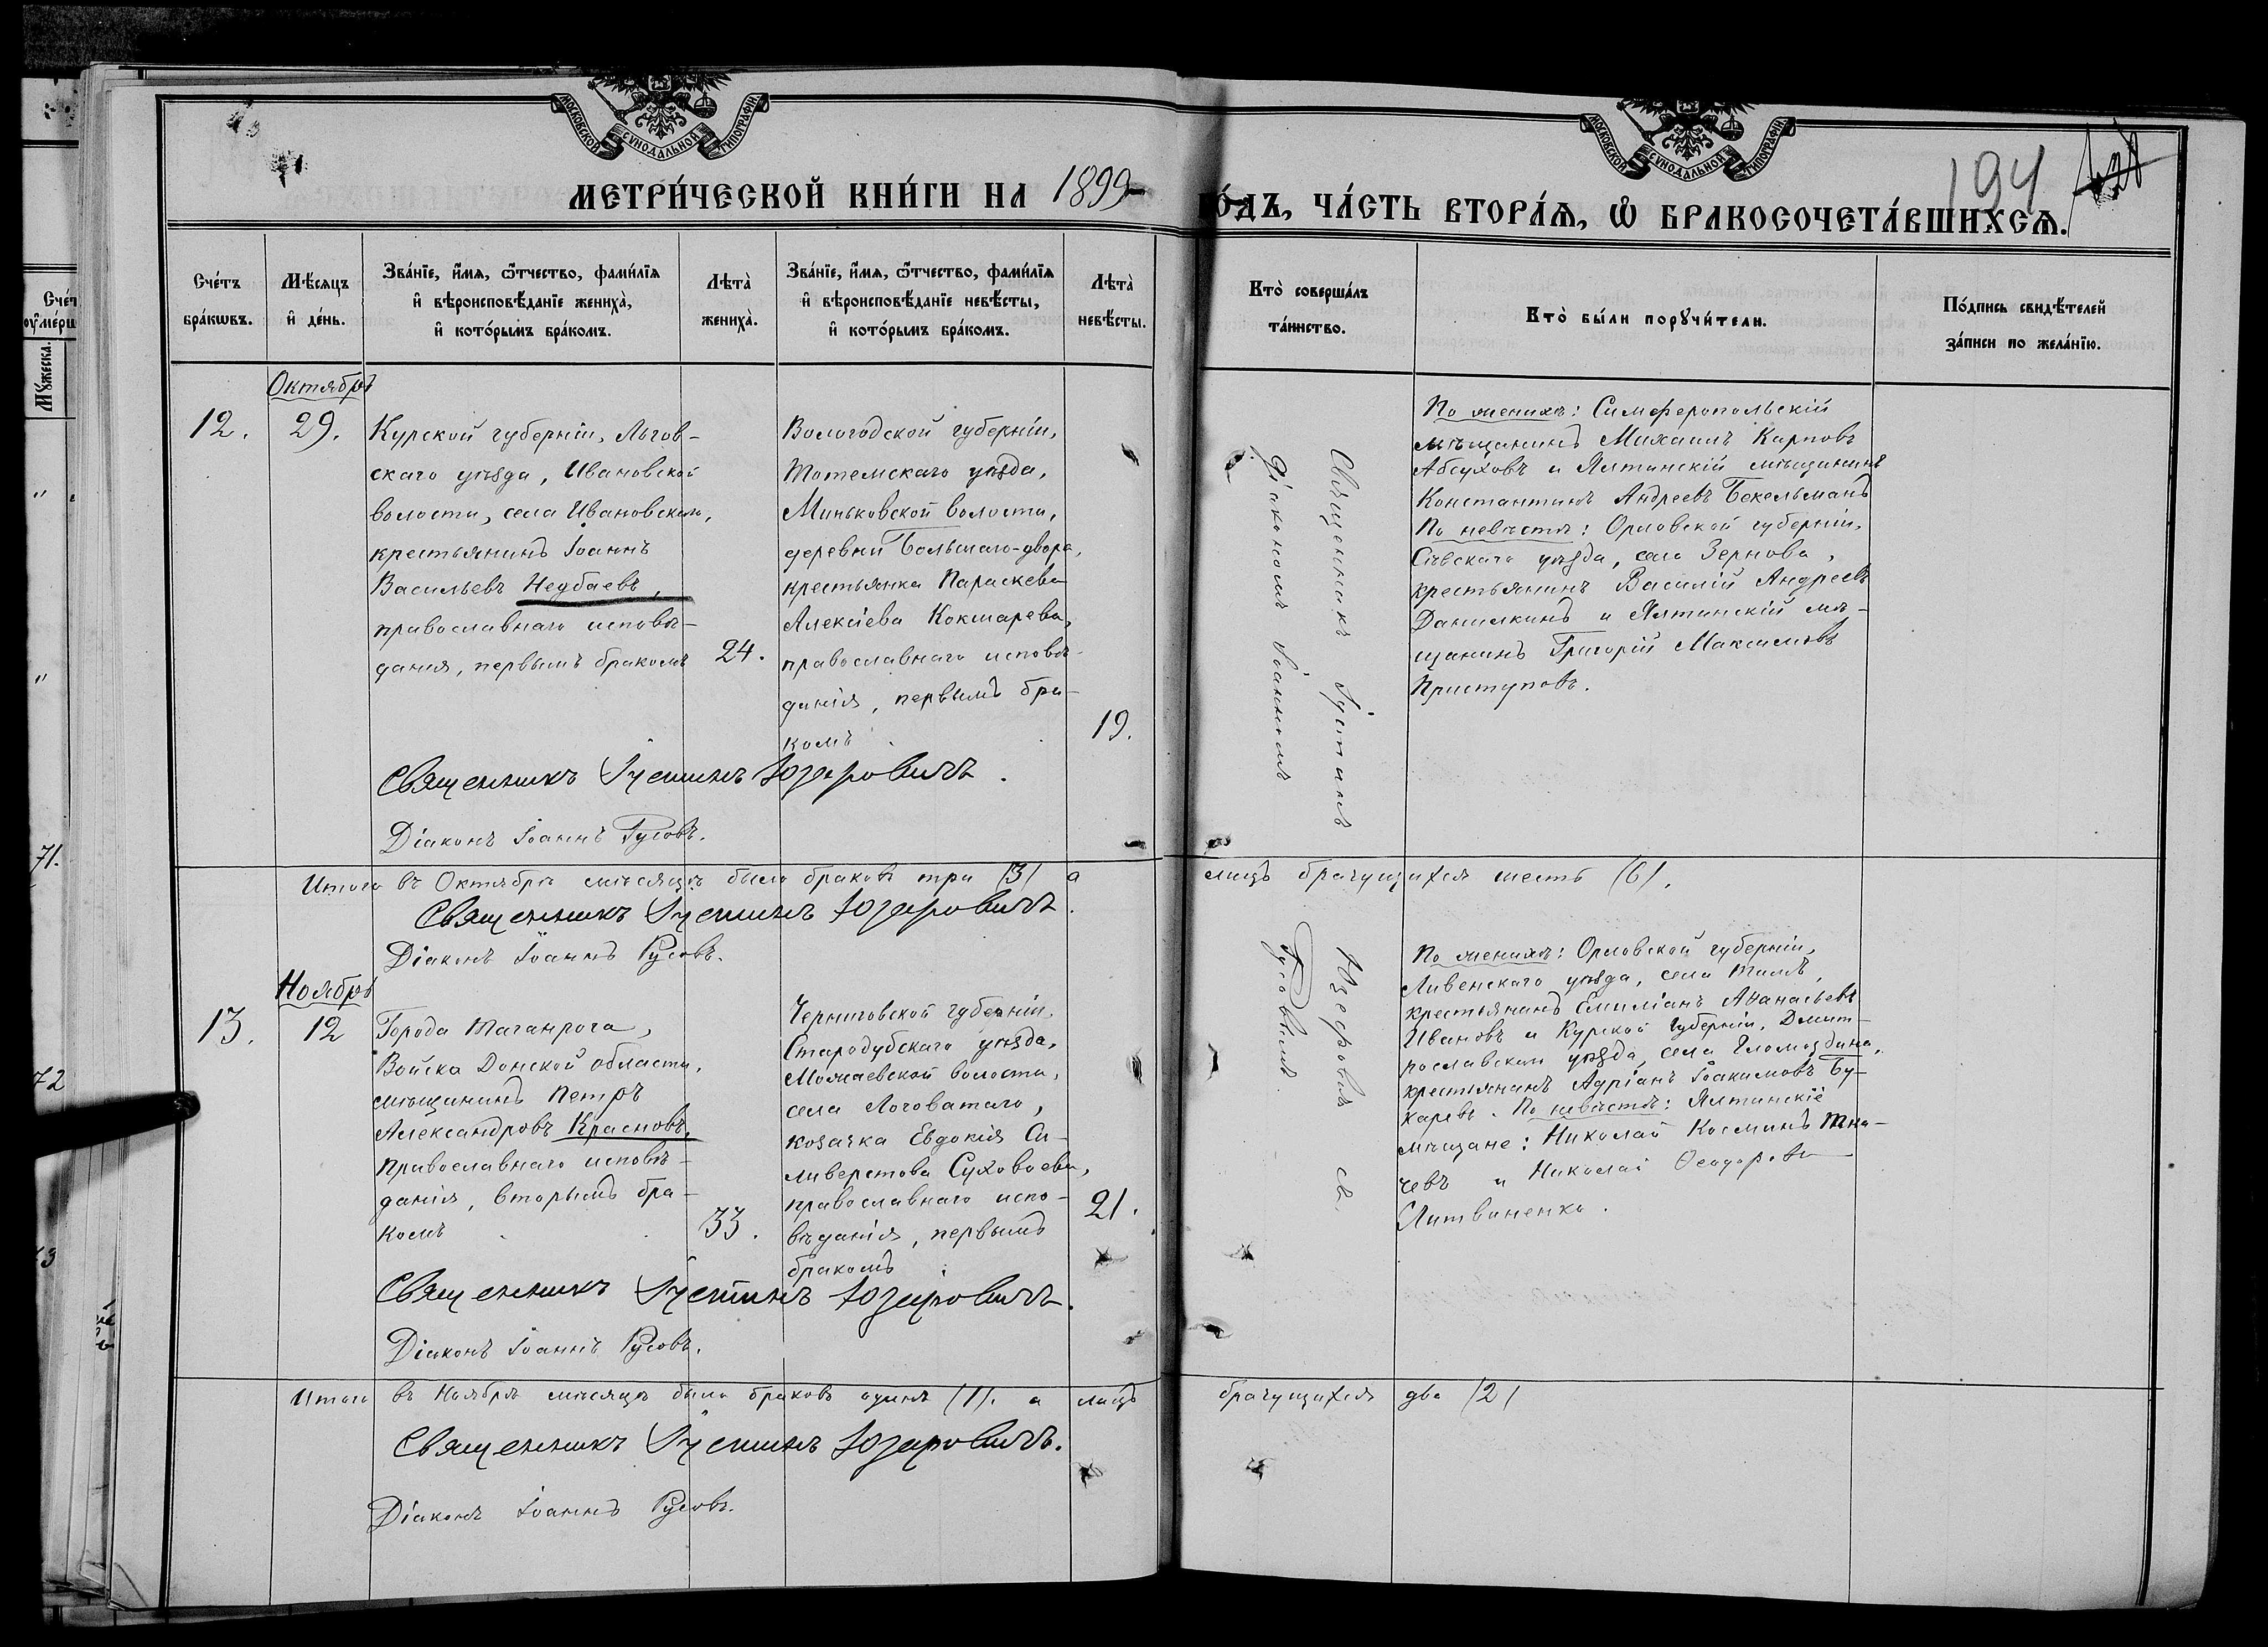 МОСКОВСКОЙ СѴНОДАЛЬНОЙ ТИПОГРАФІИ
МОСКОВСКОЙ СѴНОДАЛЬНОЙ ТИПОГРАФІИ
194
МЕТРИ́ЧЕСКОЙ КНИ́ГИ НА 1899
ГО́ДЪ, ЧА́СТЬ ВТОРА́Я, Ѡ БРАКОСОЧЕТА́ВШИХСЯ.
Сче́тъ
бра́кѡвъ.
Мѣ́сяцъ
и҆ де́нь.
Зва́нїе, и҆́мя, ѻ҆́тчество, фами́лїя
и҆ вѣроисповѣ́данїе жениха̀,
и҆ кото́рымъ бра́комъ.
Лѣта̀
жениха̀.
Зва́нїе, и҆́мя, ѻ҆́тчество, фами́лїя
и҆ вѣроисповѣ́данїе невѣ́сты,
и҆ кото́рымъ бра́комъ.
Лѣта̀
невѣ́сты.
Кто̀ соверша́лъ
та́инство.
Кто̀ бы́ли порꙋчи́тели.
По́дпись свидѣ́телей
за́писи по жела́нїю.
12.
Октябрь
29.
Курской губерніи, Льгов-
скаго уѣзда, Ивановской
волости, села Ивановскаго,
крестьянинъ Іоаннъ
Васильевъ Недбаевъ,
православнаго исповѣ-
данія, первымъ бракомъ
24.
Вологодской губерніи,
Тотемскаго уѣзда,
Миньковской волости,
деревни Большаго-двора,
крестьянка Параскева
Алексіева Кокшарева,
православнаго исповѣ-
данія, первымъ бра-
комъ
19.
Священникъ Іустинъ
Діакономъ Іоанномъ
По женихѣ: Симферопольскій
мѣщанинъ Михаилъ Карповъ
Абсуховъ и Ялтинскій мѣщанинъ
Константинъ Андреевъ Бекельманъ
По невѣстѣ: Орловской губерніи,
Сѣвскаго уѣзда, села Зернова,
крестьянинъ Василій Андреевъ
Данилкинъ и Ялтинскій мѣ-
щанинъ Григорій Максимовъ
Приступовъ.
Священникъ Іустинъ Юзефовичъ.
Діаконъ Іоаннъ Русовъ.
Итого въ Октябрѣ мѣсяцѣ было браковъ три (3) а лицъ брачущихся шесть (6).
Священникъ Іустинъ Юзефовичъ.
Діаконъ Іоаннъ Русовъ.
13.
Ноябрь
12
Города Таганрога,
Войска Донской области,
мѣщанинъ Петръ
Александровъ Красновъ,
православнаго исповѣ-
данія, вторымъ бра-
комъ
33.
Черниговской губерніи,
Стародубскаго уѣзда,
волости,
села Логоватаго,
козачка Евдокія Си-
ливерстова Суховаева,
православнаго испо-
вѣданія, первымъ
бракомъ
21.
Юзефовичъ съ
Русовымъ.
По женихѣ: Орловской губерніи,
Ливенскаго уѣзда, села Тимъ,
крестьянинъ Емиліанъ Аѳанасьевъ
Ивановъ и Курской губерніи, Дмит-
рославскаго уѣзда, села Гломоздина,
крестьянинъ Адріанъ Іоакимовъ Бу-
каревъ. По невѣстѣ: Ялтинскіе
мѣщане: Николай Косминъ Тка-
чевъ и Николай Ѳеодоровъ
Литвиненко.
Священникъ Іустинъ Юзефовичъ.
Діаконъ Іоаннъ Русовъ.
Итого въ Ноябрѣ мѣсяцѣ было браковъ одинъ (1). а лицъ брачущихся два (2)
Священникъ Іустинъ Юзефовичъ.
Діаконъ Іоаннъ Русовъ.
Мꙋжеска.
71.
72